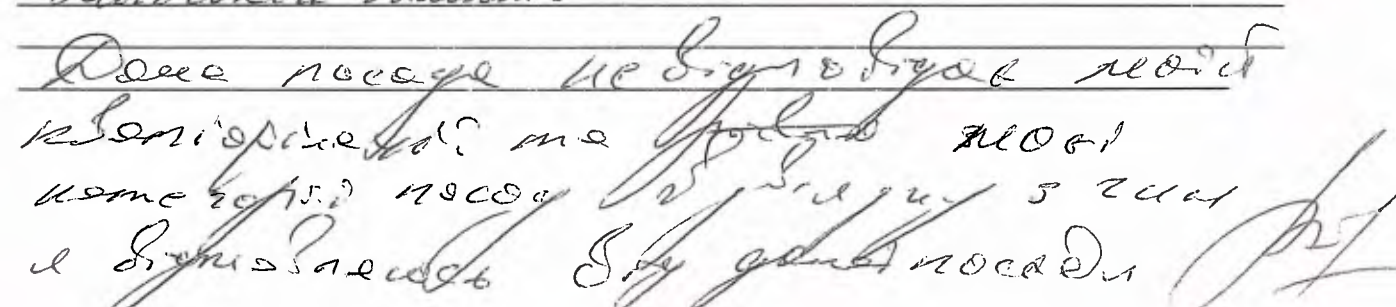 Дана посада не відповідає моїй
кваліфікації та моєї
категорії посад. В зв'язку з чим
я відмовляюсь від даної посади